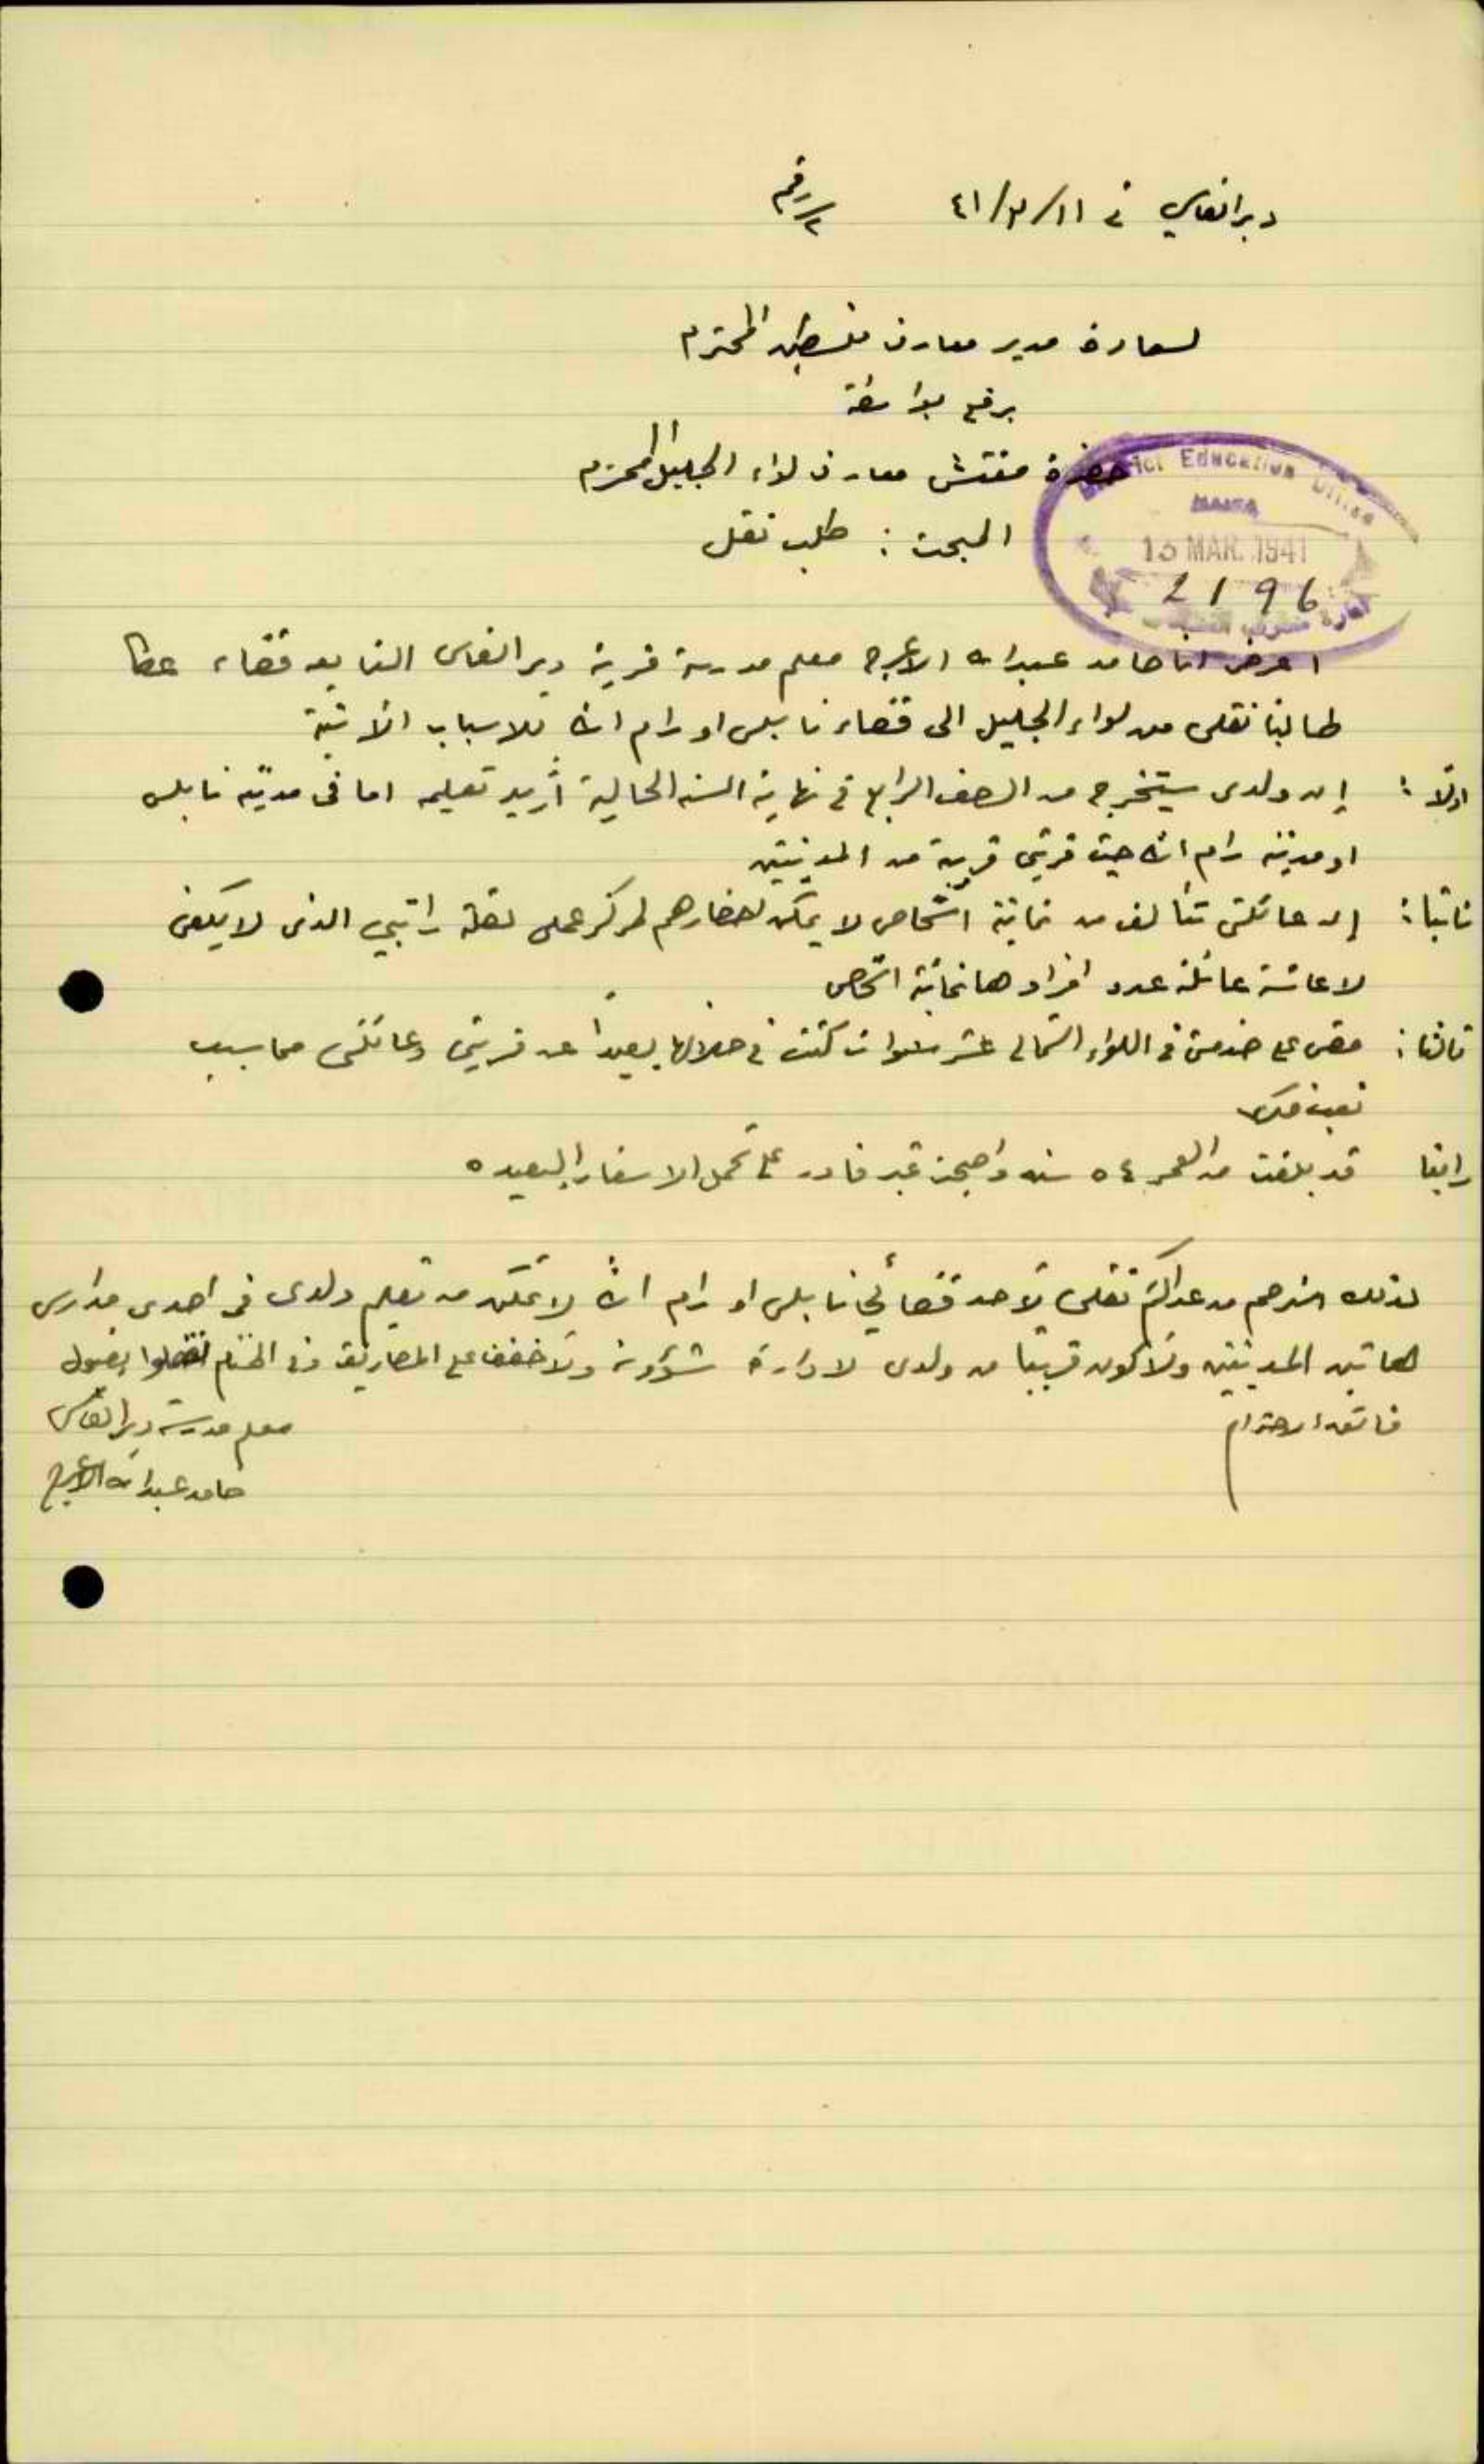 دير القاسي في ١١/٣/٤١ رقم ٢
لسعادة مدير معارف فلسطين المحترم
يرفع بواسطة
حضرة مفتش معارف لواء الجليل المحترم
District Education Office
HAIFA
13 MAR. 1941
2196
المبحث : طلب نقل
اعرض انا حامد عبدالله الاعرج معلم مدرسة قرية دير القاسي التابعة قضاء عكا
طالبا نقلي من لواء الجليل الى قضاء نابلس او رام الله للاسباب الآتية
اولا : إن ولدي سيتخرج من الصف الرابع في نهاية السنه الحالية أريد تعليمه اما في مدينة نابلس
او مدينة رام الله حيث قريتي قريبة من المدينتين
ثانيا : إن عائلتي تتألف من ثمانية اشخاص لا يمكن احضارهم لمركز عملي لقلة راتبي الذي لا يكفي
لاعاشة عائلة عدد افرادها ثمانية اشخاص
ثالثا : مضى علي خدمتي في اللواء الشمالي عشر سنوات كنت في خلالها بعيدا عن قريتي وعائلتي مما سبب
رابعا قد بلغت من العمر ٥٤ سنه واصبحت غير قادر على تحمل الاسفار البعيده
لذلك استرحم من عدالتكم نقلي لأحد قضائي نابلس او رام الله لأتمكن من تعليم ولدي في احدى مدارس
هاتين المدينتين ولأكون قريبا من ولدي لادارة شؤونه ولأخفف علي المصاريف وفي الختام تفضلوا بقبول
فائق الاحترام
معلم مدرسة دير القاسي
حامد عبدالله الاعرج